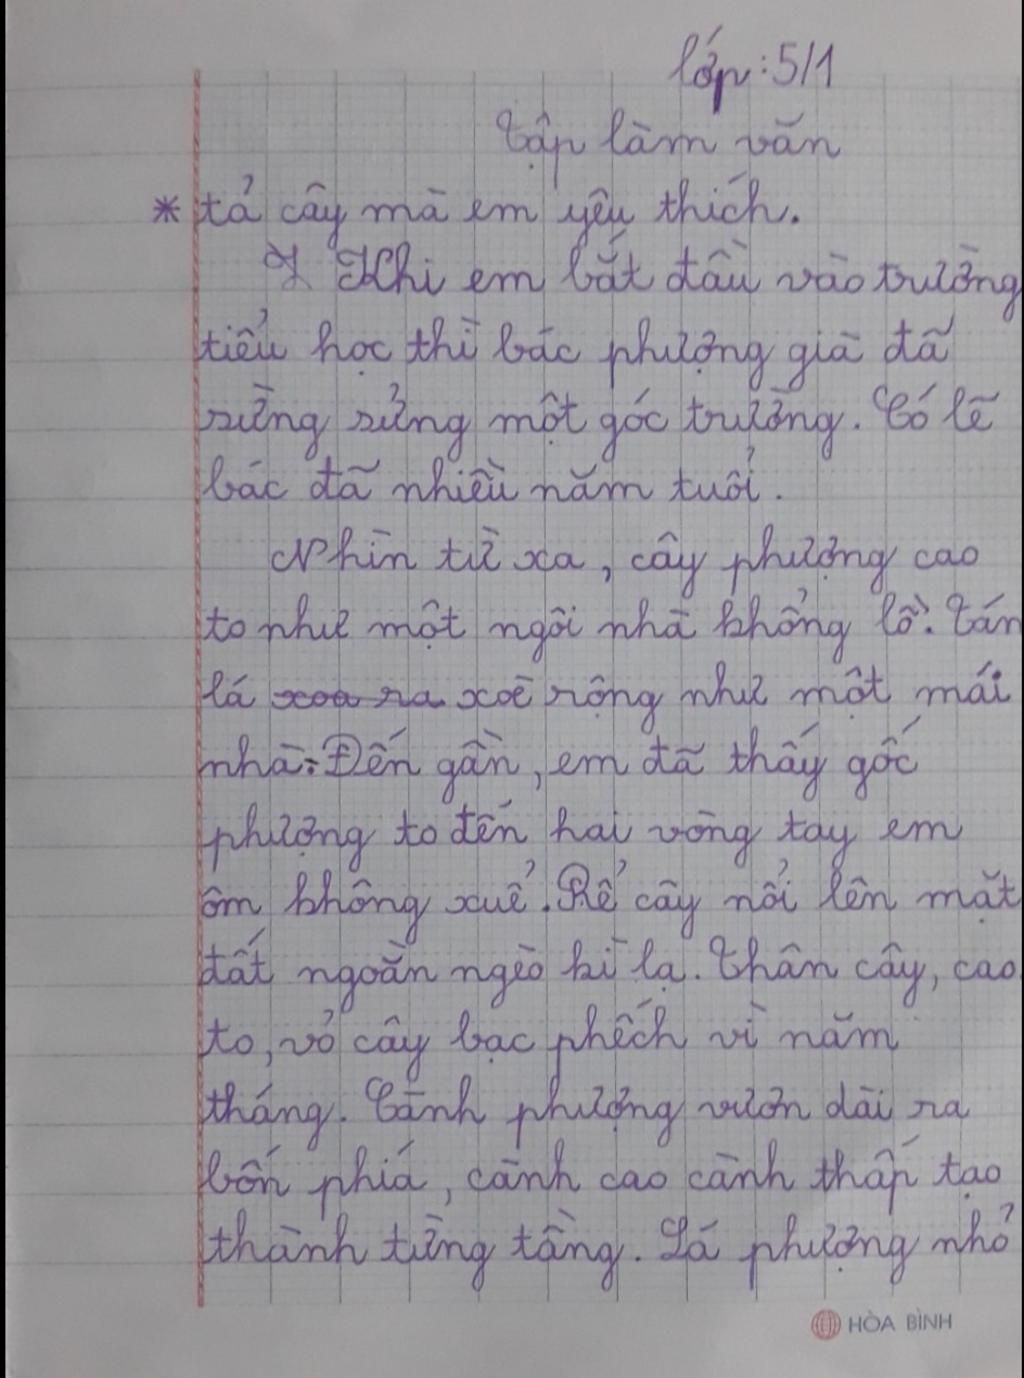 lớp: 5/1
Tập làm văn
* tả cây mà em yêu thích.
Khi em bắt đầu vào trường
tiểu học thì bác phượng già đã
sừng sửng một góc trường. Có lẽ
bác đã nhiều năm tuổi.
Nhìn từ xa, cây phượng cao
to như một ngôi nhà khổng lồ. Tán
lá xoa ra xoè rộng như một mái
nhà. Đến gần, em đã thấy gốc
phượng to đến hai vòng tay em
ôm không xuể. Rể cây nổi lên mặt
đất ngoằn ngèo kì lạ. Thân cây, cao
to, vỏ cây bạc phếch vì năm
tháng. Cành phượng vươn dài ra
bốn phiá, cành cao cành thấp tạo
thành từng tầng. Lá phượng nhỏ
HÒA BÌNH